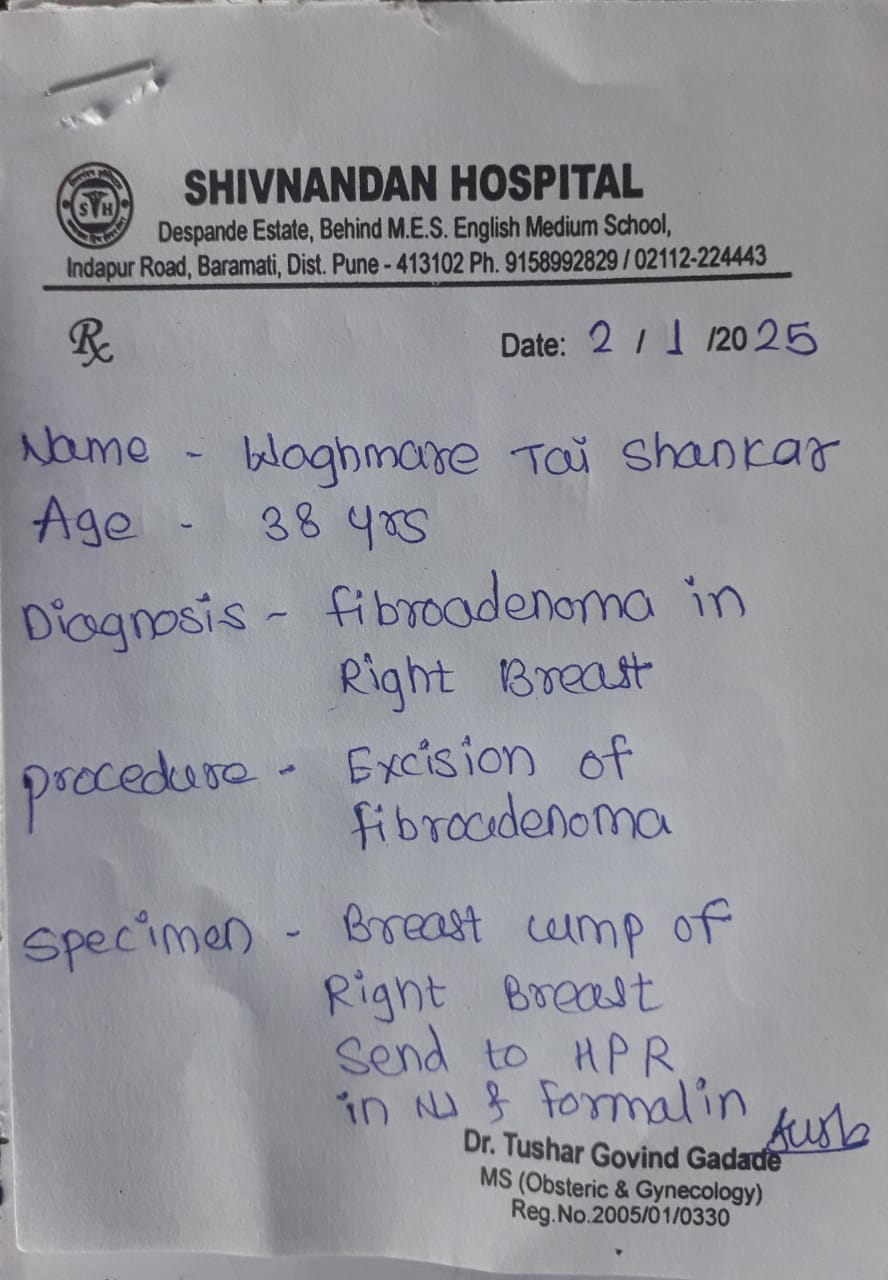 SHIVNANDAN HOSPITAL
S H
Despande Estate, Behind M.E.S. English Medium School,
Indapur Road, Baramati, Dist. Pune - 413102 Ph. 9158992829 / 02112-224443
Rx
Date: 2 / 1 /2025
Name - Waghmare Tai Shankar
Age - 38 yrs
Diagnosis - fibroadenoma in
Right Breast
procedure - Excision of
fibroadenoma
Specimen - Breast lump of
Right Breast
Send to HPR
in NS & formalin
Dr. Tushar Govind Gadade
MS (Obsteric & Gynecology)
Reg.No.2005/01/0330